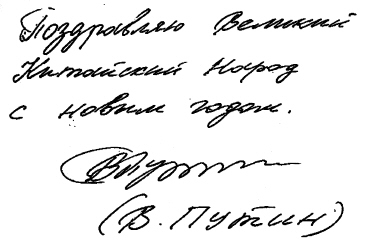 Поздравляю Великий
Китайский Народ
с новым годом.
ВПутин
(В. Путин)